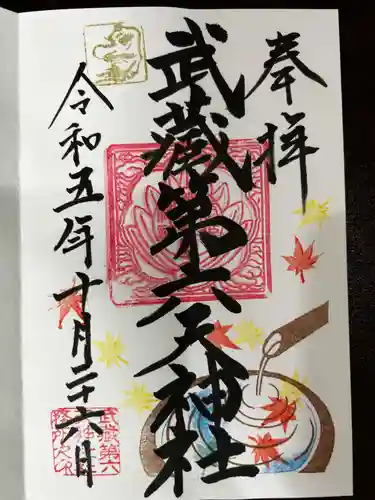 奉拝
武蔵第六天神社
令和五年十月二十六日
武蔵第六